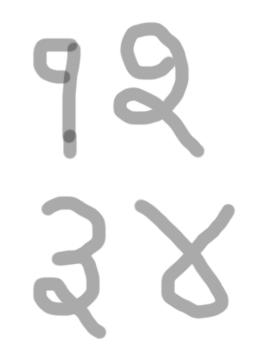 १२
३४